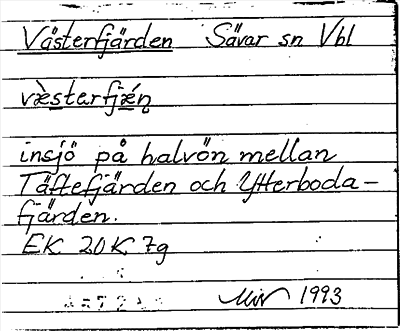 Västerfjärden Sävar sn Vbl
væ̀sterfjǽṇ
insjö på halvön mellan
Täftefjärden och Ytterboda-
fjärden.
EK 20K 7g
1993